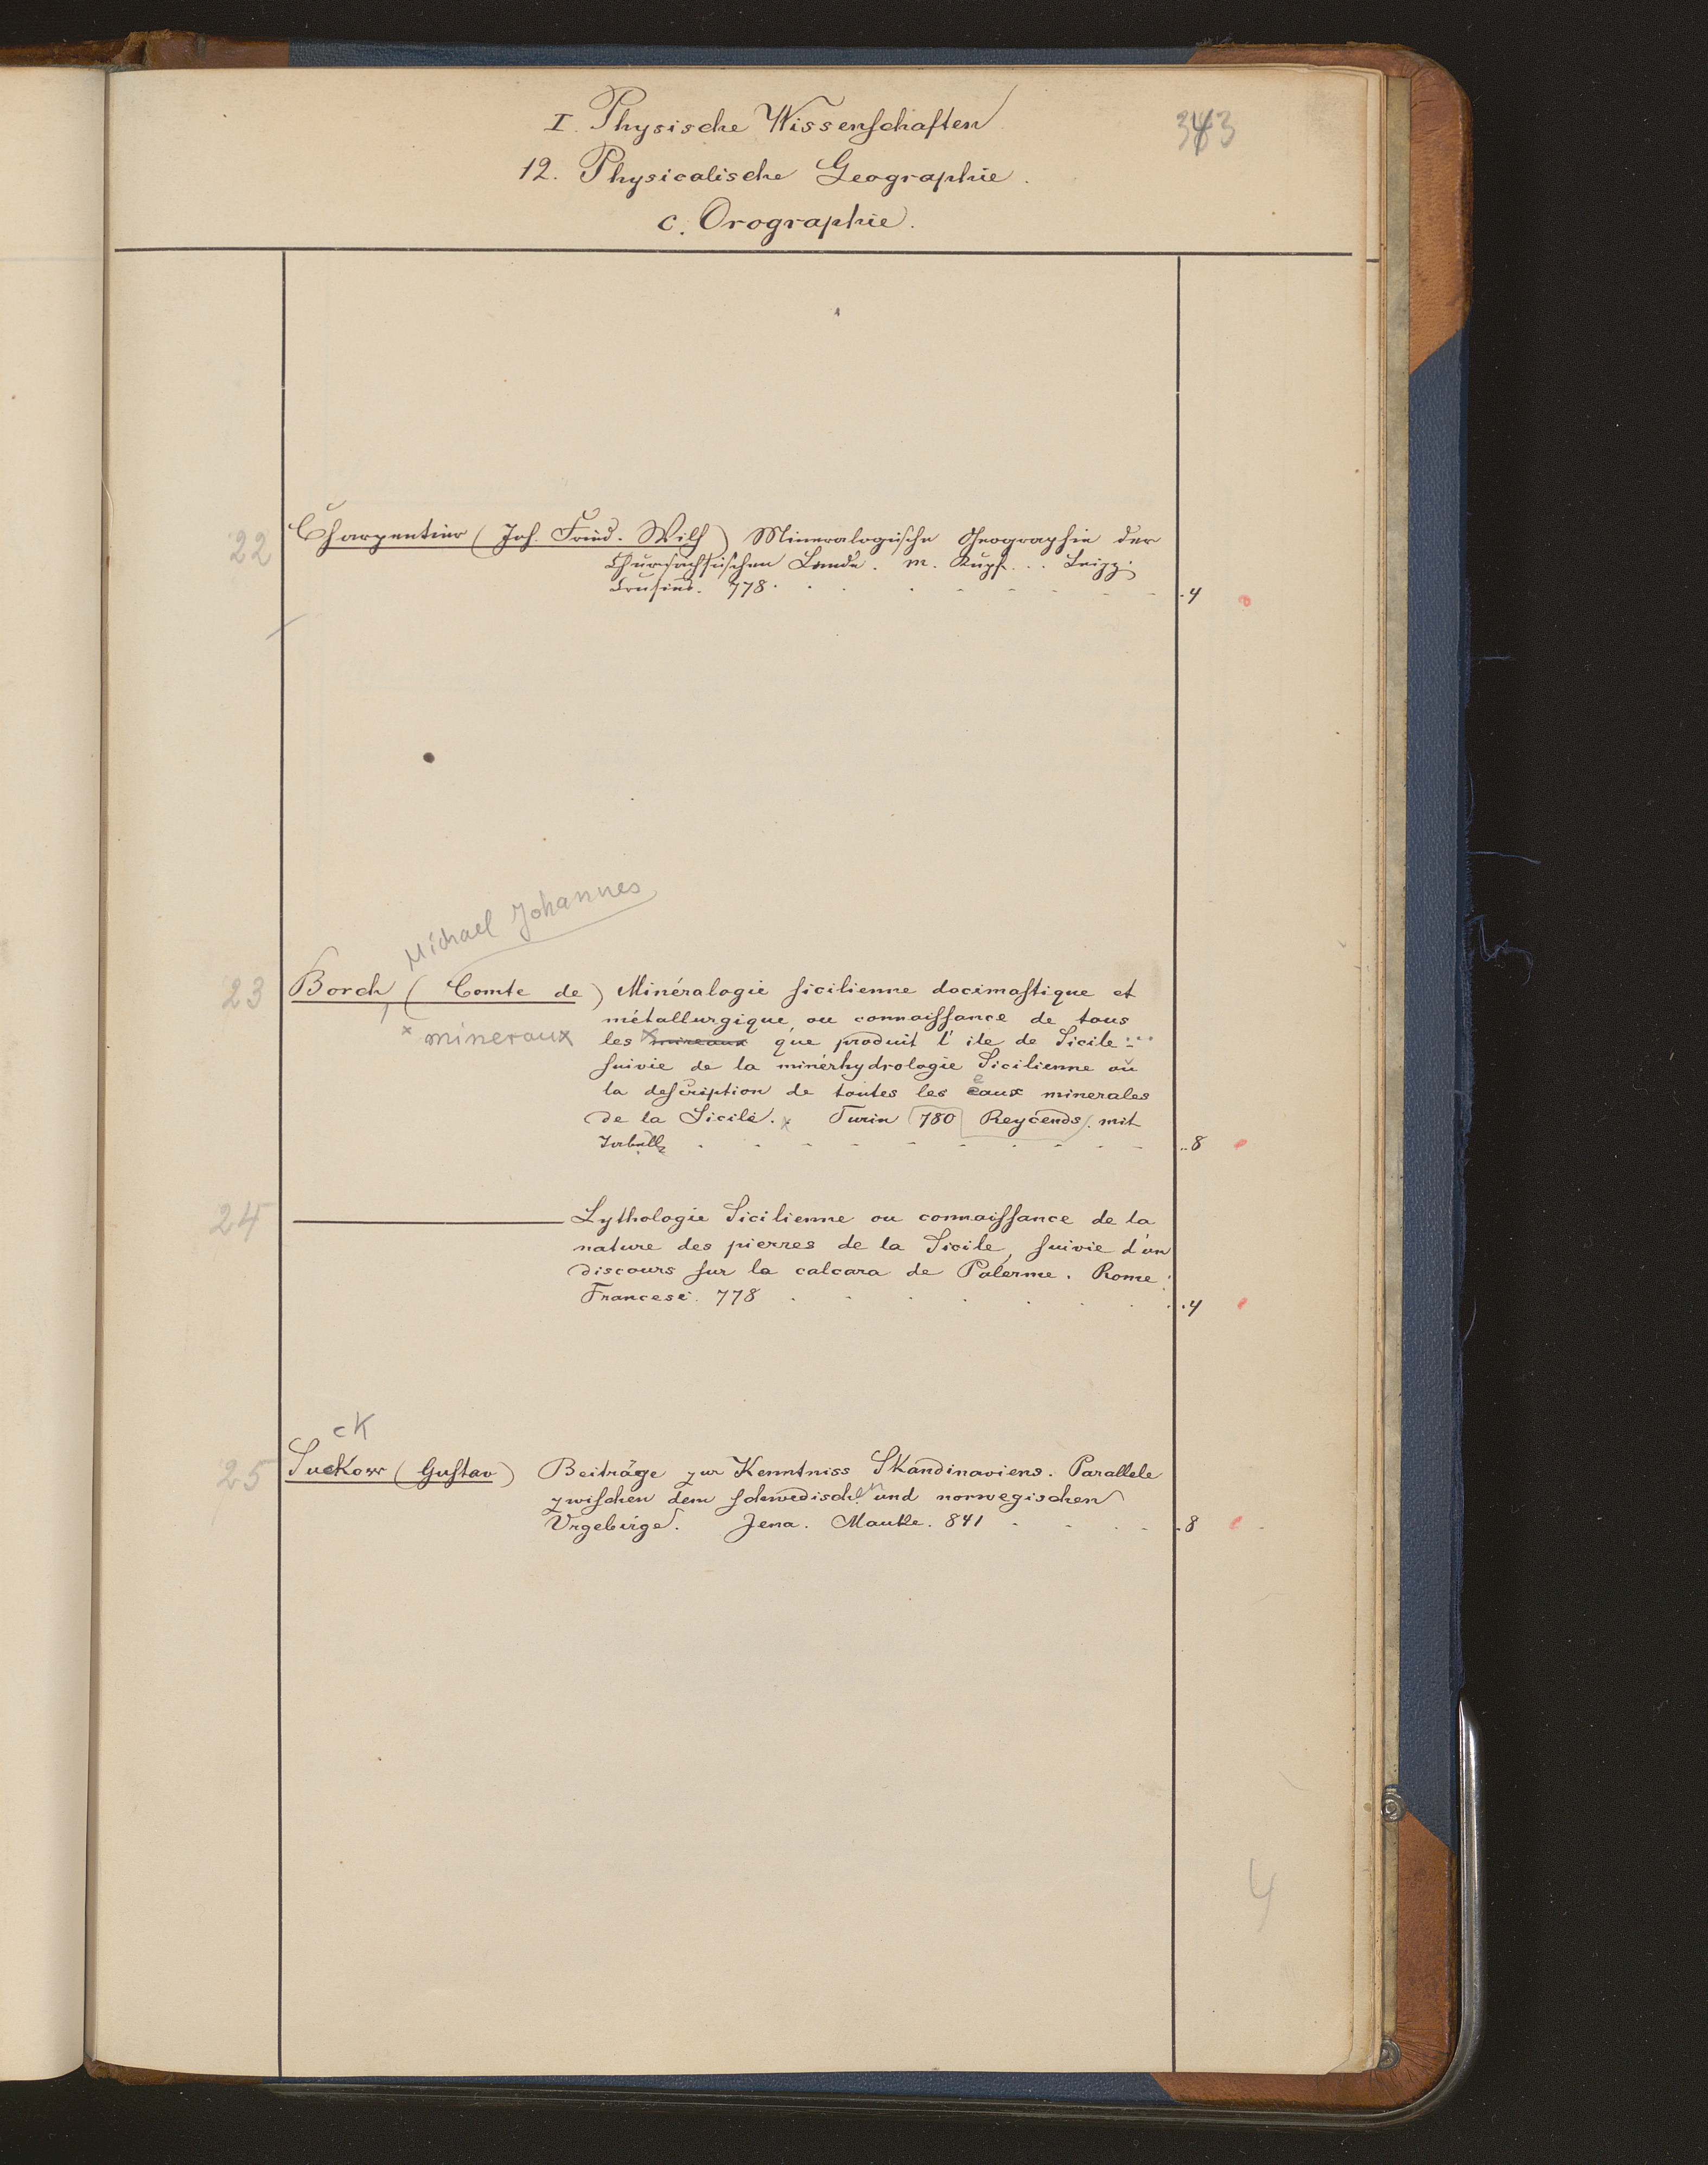 I. Physische Wissenschaften
343
12. Physicalische Geographie.
c. Orographie.
22 Charpentier (Joh. Fried. Wilh) Mineralogische Geographie der
Chursächsischen Lande. m. Kupf... Leipz.
Crusius. 778. .4
Michael Johannes
23 Borch, (Comte de) Minéralogie sicilienne docimastique et
métallurgique, ou connaissance de tous
× mineraux les × mineaux que produit l'ile de Sicile...
suivie de la minérhydrologie Sicilienne ou
la description de toutes les eaux minerales
de la Sicile. × Turin 780 Reycends. mit
..8
24 ——— Lythologie Sicilienne ou connaissance de la
nature des pierres de la Sicile, suivie d'un
discours sur la calcara de Palerme. Rome.
Francesi. 778 .4
ck
25 Suckow (Gustav) Beiträge zur Kenntniss Skandinaviens. Parallele
zwischen dem schwedischen und norwegischen
Urgebirge. Jena. Mauke. 841 .8
4